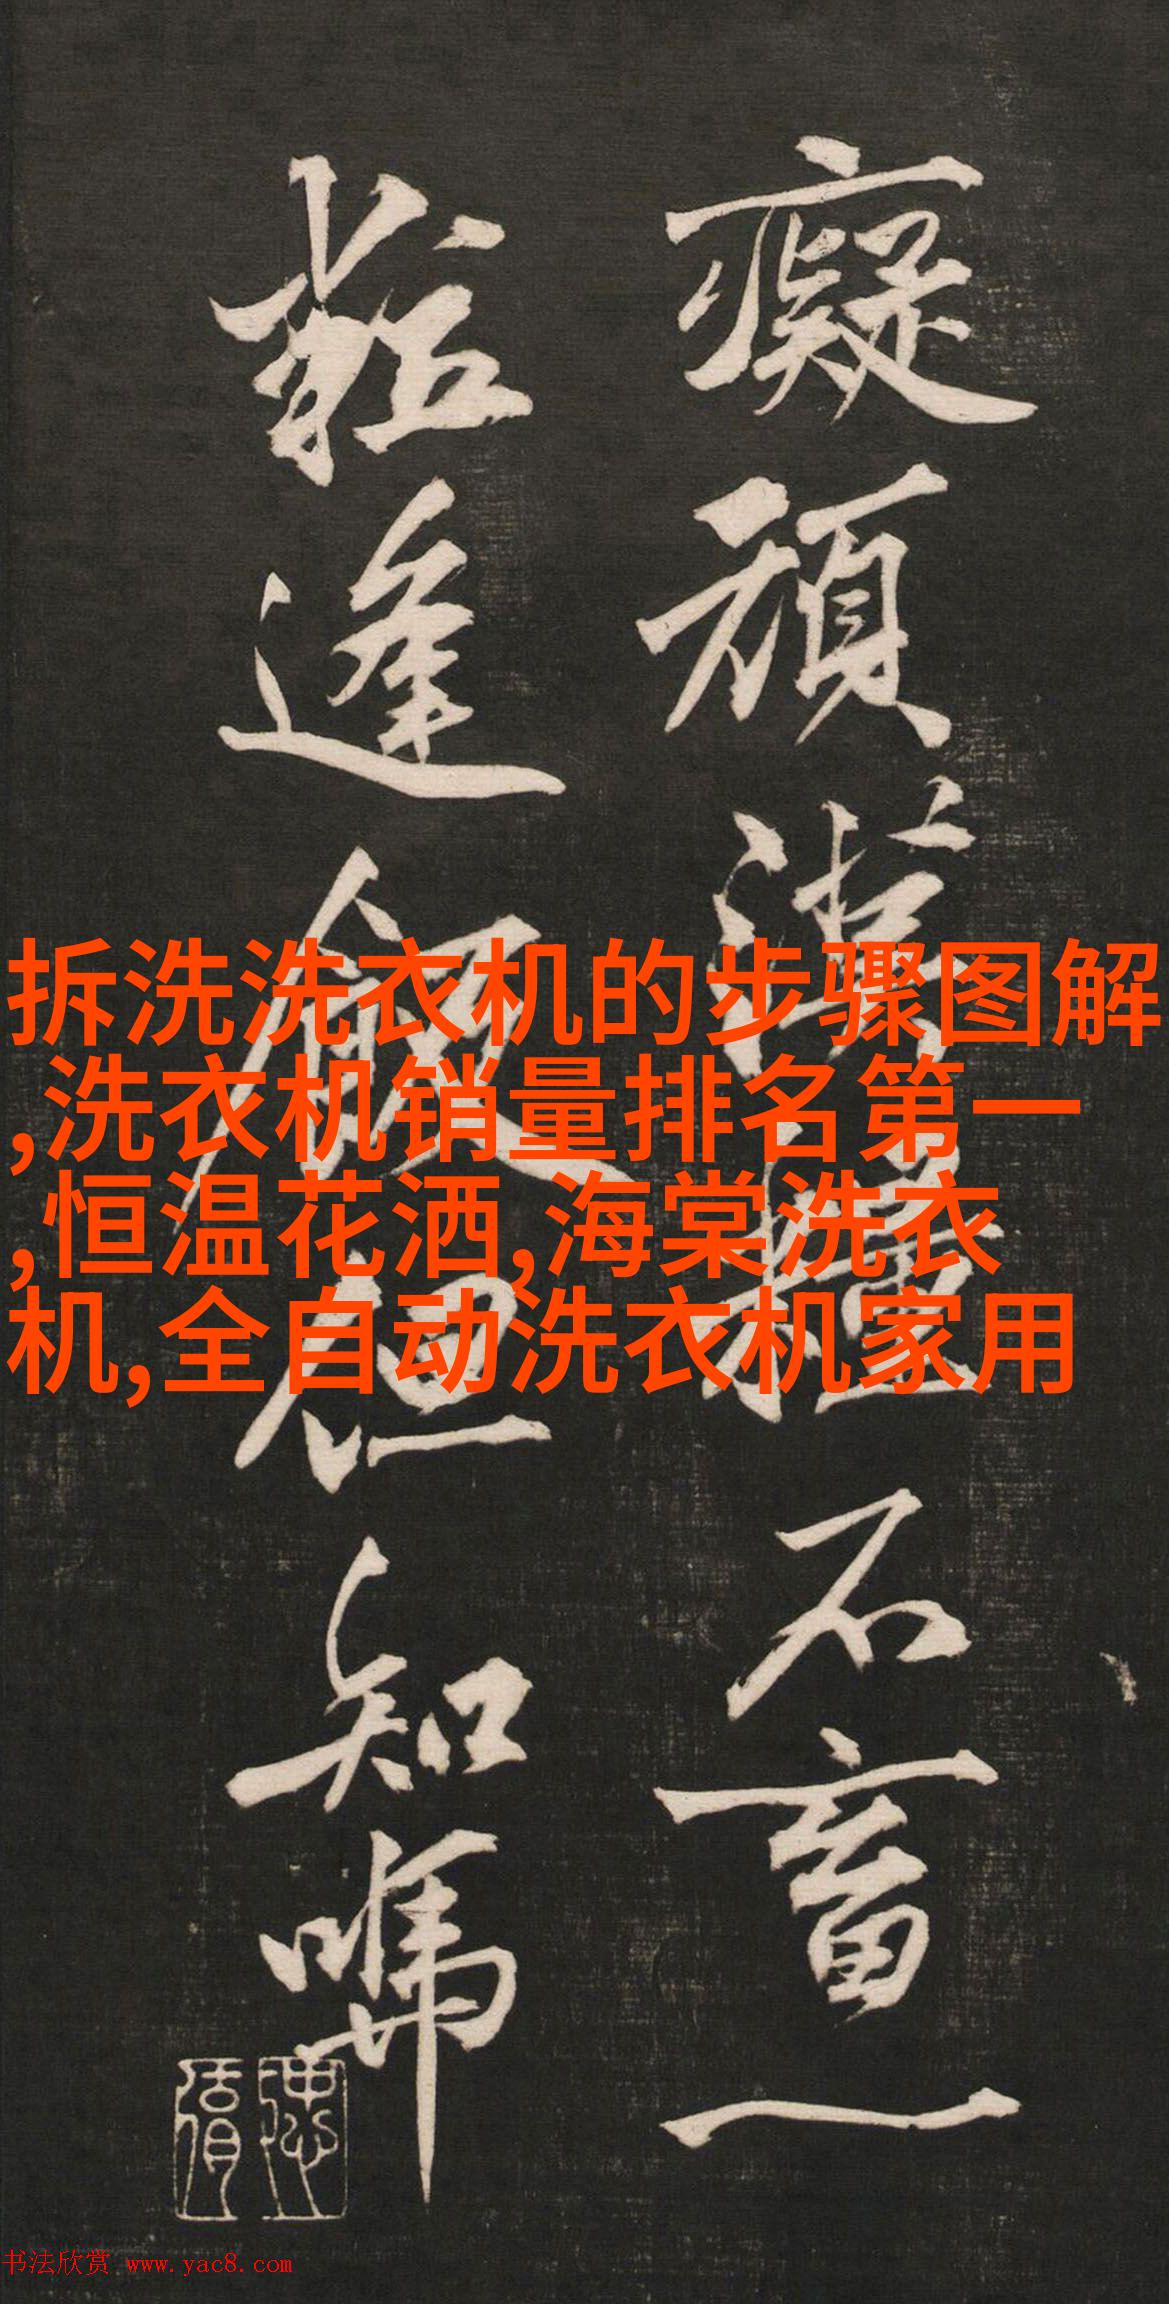 癡頑石畜一
逢飯但知
拆洗洗衣机的步骤图解
,洗衣机销量排名第一
,恒温花洒,海棠洗衣
机,全自动洗衣机家用
书法欣赏 www.yac8.com